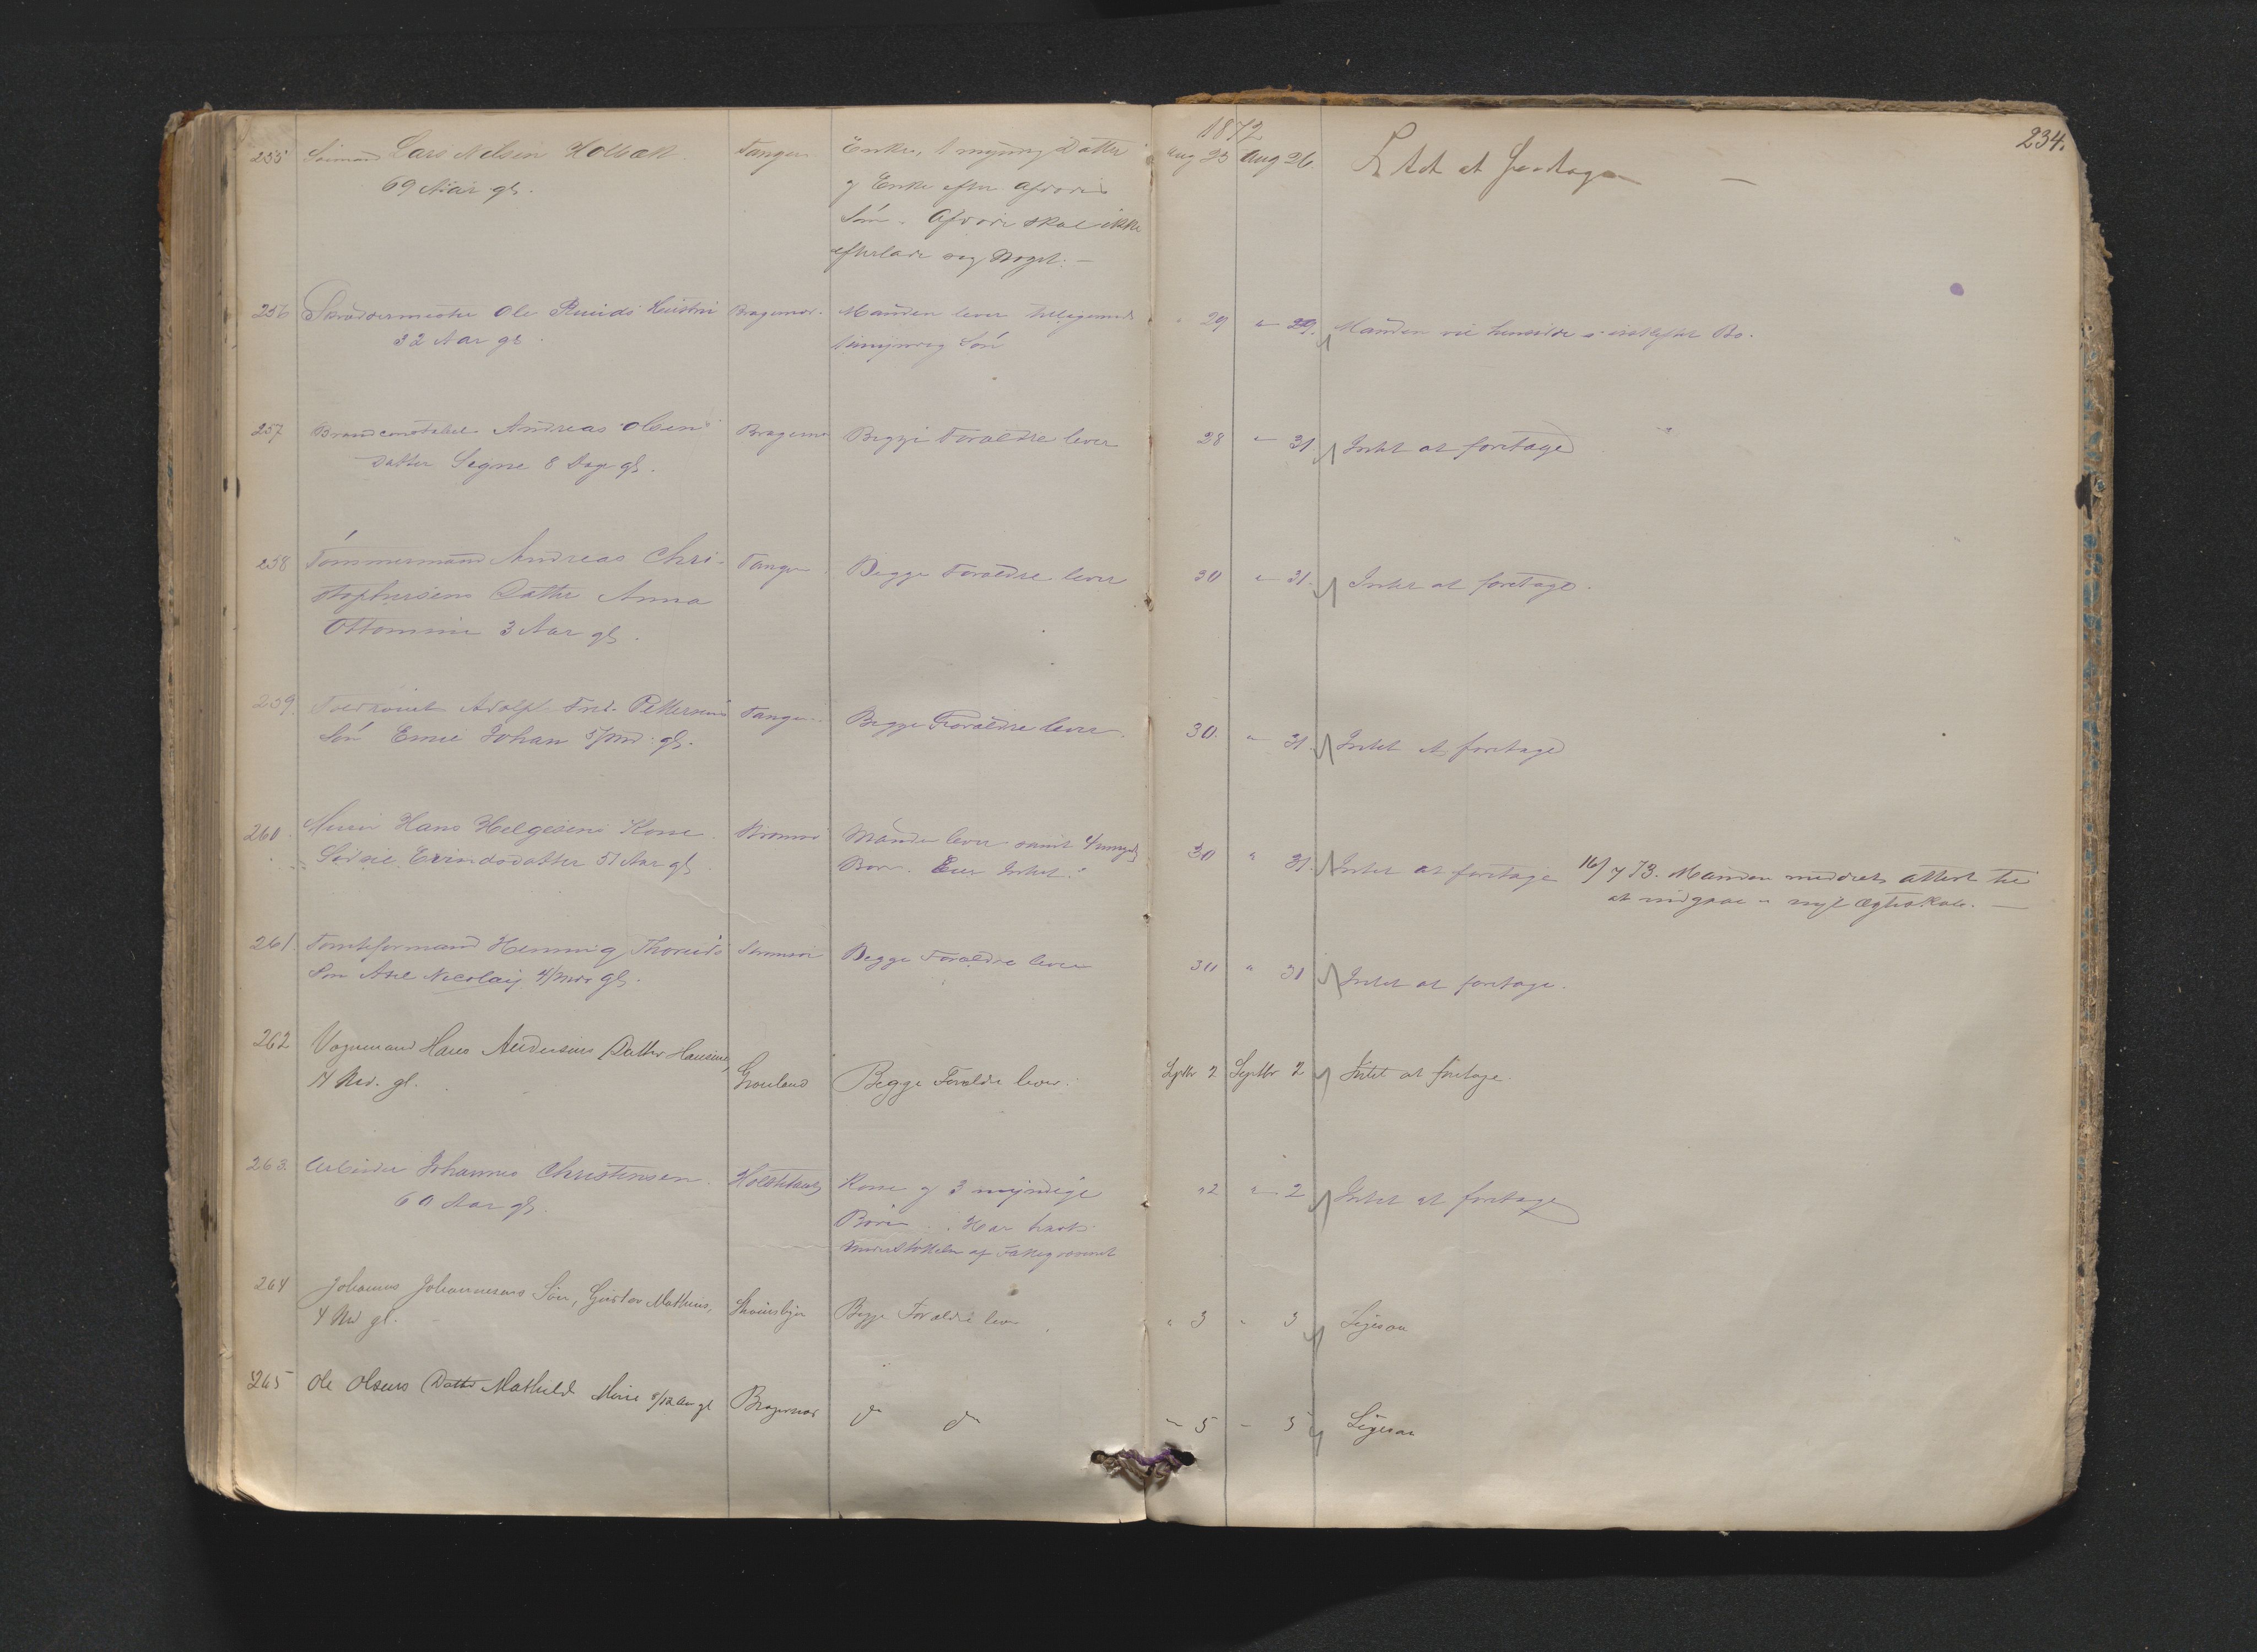 234.
1872
255 Sømand Lars Nilsen Holbæk Tangen Enke, 1 myndig Datter Aug 23 Aug 26. Intet at foretage —
69 Aar gl.
og Enke efter afdøde
Søn. Afdøde skal ikke
efterlade sig Noget. —
256 Skræddermester Ole Ruuds Hustru Bragernæs. Manden lever tilligemed " 29 " 29. Manden vil hensidde i uskiftet Bo.
32 Aar gl.
1 umyndig Søn
257 Brandconstabel Andreas Olsens Bragernæs Begge Forældre lever 28 " 31 Intet at foretage
Datter Signe 8 Dage gl.
258 Tømmermand Andreas Chri- Tangen Begge Forældre lever 30 " 31. Intet at foretage.
stophersens Datter Anna
Ottomine 3 Aar gl.
259. Adolf Fred. Pettersens Tangen. Begge Forældre lever. 30. " 31. Intet at foretage
Søn Emil Johan 5/ md. gl.
260. Murer Hans Helgesens Kone Manden lever samt 4 umynd. 30 " 31. Intet at foretage 16/7 73. Manden meddelt attest til
Eivindsdatter 51 Aar gl.
Børn. Eier Intet.
at indgaae i nyt Ægteskab. —
261. Tomteformand Henning Strømsø Begge Forældre lever 30 " 31 Intet at foretage.
Søn Axel Nicolay 4/ mdr gl.
262 Vognmand Hans Andersens Datter Hansine, Grønland Begge Forældre lever. Septbr 2 Septbr 2 Intet at foretage.
14 Md. gl.
263. Arbeider Johannes Christensen. Kone og 3 myndige " 2 " 2 Intet at foretage
60 Aar gl.
Børn. Har havt
Understøttelse af Fattigvæsenet
264 Johannes Johannesens Søn, Gustav Mathias, Begge Forældre lever " 3 " 3 Ligesaa
4 Md gl.
265 Ole Olsens Datter Mathilde Marie 8/12 Aar gl Bragernæs do do " 5 " 5 Ligesaa